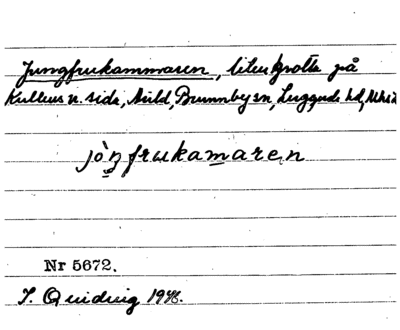 Jungfrukammaren, liten grotta på
Kullens n. sida, Arild, Brunnby sn, Luggude hd, Mhs l.
jòŋfrukam̲are̥n
Nr 5672.
I. Quidvig 1946.